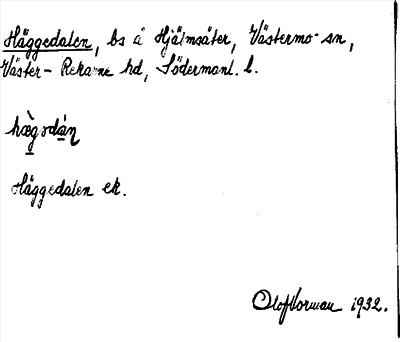 Häggedalen, bs å Hjälmsäter, Västermo sn,
Väster-Rekarne hd, Södermanl. l.
hæ̀gədán
Häggedalen ek.
Olof Vorman 1932.